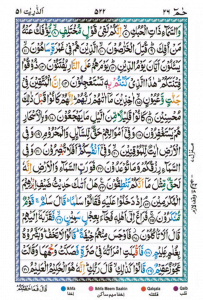 حٰمٓ ٢٦ ٥٢٢ الذّٰرِیٰت ٥١
وَالسَّمَآءِ ذَاتِ الْحُبُكِ ۝ اِنَّكُمْ لَفِيْ قَوْلٍ مُّخْتَلِفٍ ۝ يُّؤْفَكُ عَنْهُ
مَنْ اُفِكَ ۝ قُتِلَ الْخَرّٰصُوْنَ ۝ الَّذِيْنَ هُمْ فِيْ غَمْرَةٍ سَاهُوْنَ ۝
يَسْـَٔلُوْنَ اَيَّانَ يَوْمُ الدِّيْنِ ۝ يَوْمَ هُمْ عَلَى النَّارِ يُفْتَنُوْنَ ۝ ذُوْقُوْا
فِتْنَتَكُمْ هٰذَا الَّذِيْ كُنْتُمْ بِهٖ تَسْتَعْجِلُوْنَ ۝ اِنَّ الْمُتَّقِيْنَ فِيْ
جَنّٰتٍ وَّعُيُوْنٍ ۝ اٰخِذِيْنَ مَاۤ اٰتٰىهُمْ رَبُّهُمْ اِنَّهُمْ كَانُوْا قَبْلَ ذٰلِكَ
مُحْسِنِيْنَ ۝ كَانُوْا قَلِيْلًا مِّنَ الَّيْلِ مَا يَهْجَعُوْنَ ۝ وَبِالْاَسْحَارِ
هُمْ يَسْتَغْفِرُوْنَ ۝ وَفِيْۤ اَمْوَالِهِمْ حَقٌّ لِّلسَّآئِلِ وَالْمَحْرُوْمِ ۝ وَفِي
الْاَرْضِ اٰيٰتٌ لِّلْمُوْقِنِيْنَ ۝ وَفِيْۤ اَنْفُسِكُمْ اَفَلَا تُبْصِرُوْنَ ۝ وَفِي
السَّمَآءِ رِزْقُكُمْ وَمَا تُوْعَدُوْنَ ۝ فَوَرَبِّ السَّمَآءِ وَالْاَرْضِ اِنَّهٗ
لَحَقٌّ مِّثْلَ مَاۤ اَنَّكُمْ تَنْطِقُوْنَ ۝ هَلْ اَتٰىكَ حَدِيْثُ ضَيْفِ اِبْرٰهِيْمَ
الْمُكْرَمِيْنَ ۝ اِذْ دَخَلُوْا عَلَيْهِ فَقَالُوْا سَلٰمًا قَالَ سَلٰمٌ قَوْمٌ
مُّنْكَرُوْنَ ۝ فَرَاغَ اِلٰۤى اَهْلِهٖ فَجَآءَ بِعِجْلٍ سَمِيْنٍ ۝ فَقَرَّبَهٗۤ اِلَيْهِمْ
قَالَ اَلَا تَاْكُلُوْنَ ۝ فَاَوْجَسَ مِنْهُمْ خِيْفَةً قَالُوْا لَا تَخَفْ وَبَشَّرُوْهُ
بِغُلٰمٍ عَلِيْمٍ ۝ فَاَقْبَلَتِ امْرَاَتُهٗ فِيْ صَرَّةٍ فَصَكَّتْ وَجْهَهَا وَقَالَتْ
عَجُوْزٌ عَقِيْمٌ ۝ قَالُوْا كَذٰلِكِ قَالَ رَبُّكِ اِنَّهٗ هُوَ الْحَكِيْمُ الْعَلِيْمُ ۝
Ikhfa Ikhfa Meem Saakin Qalqala Qalb